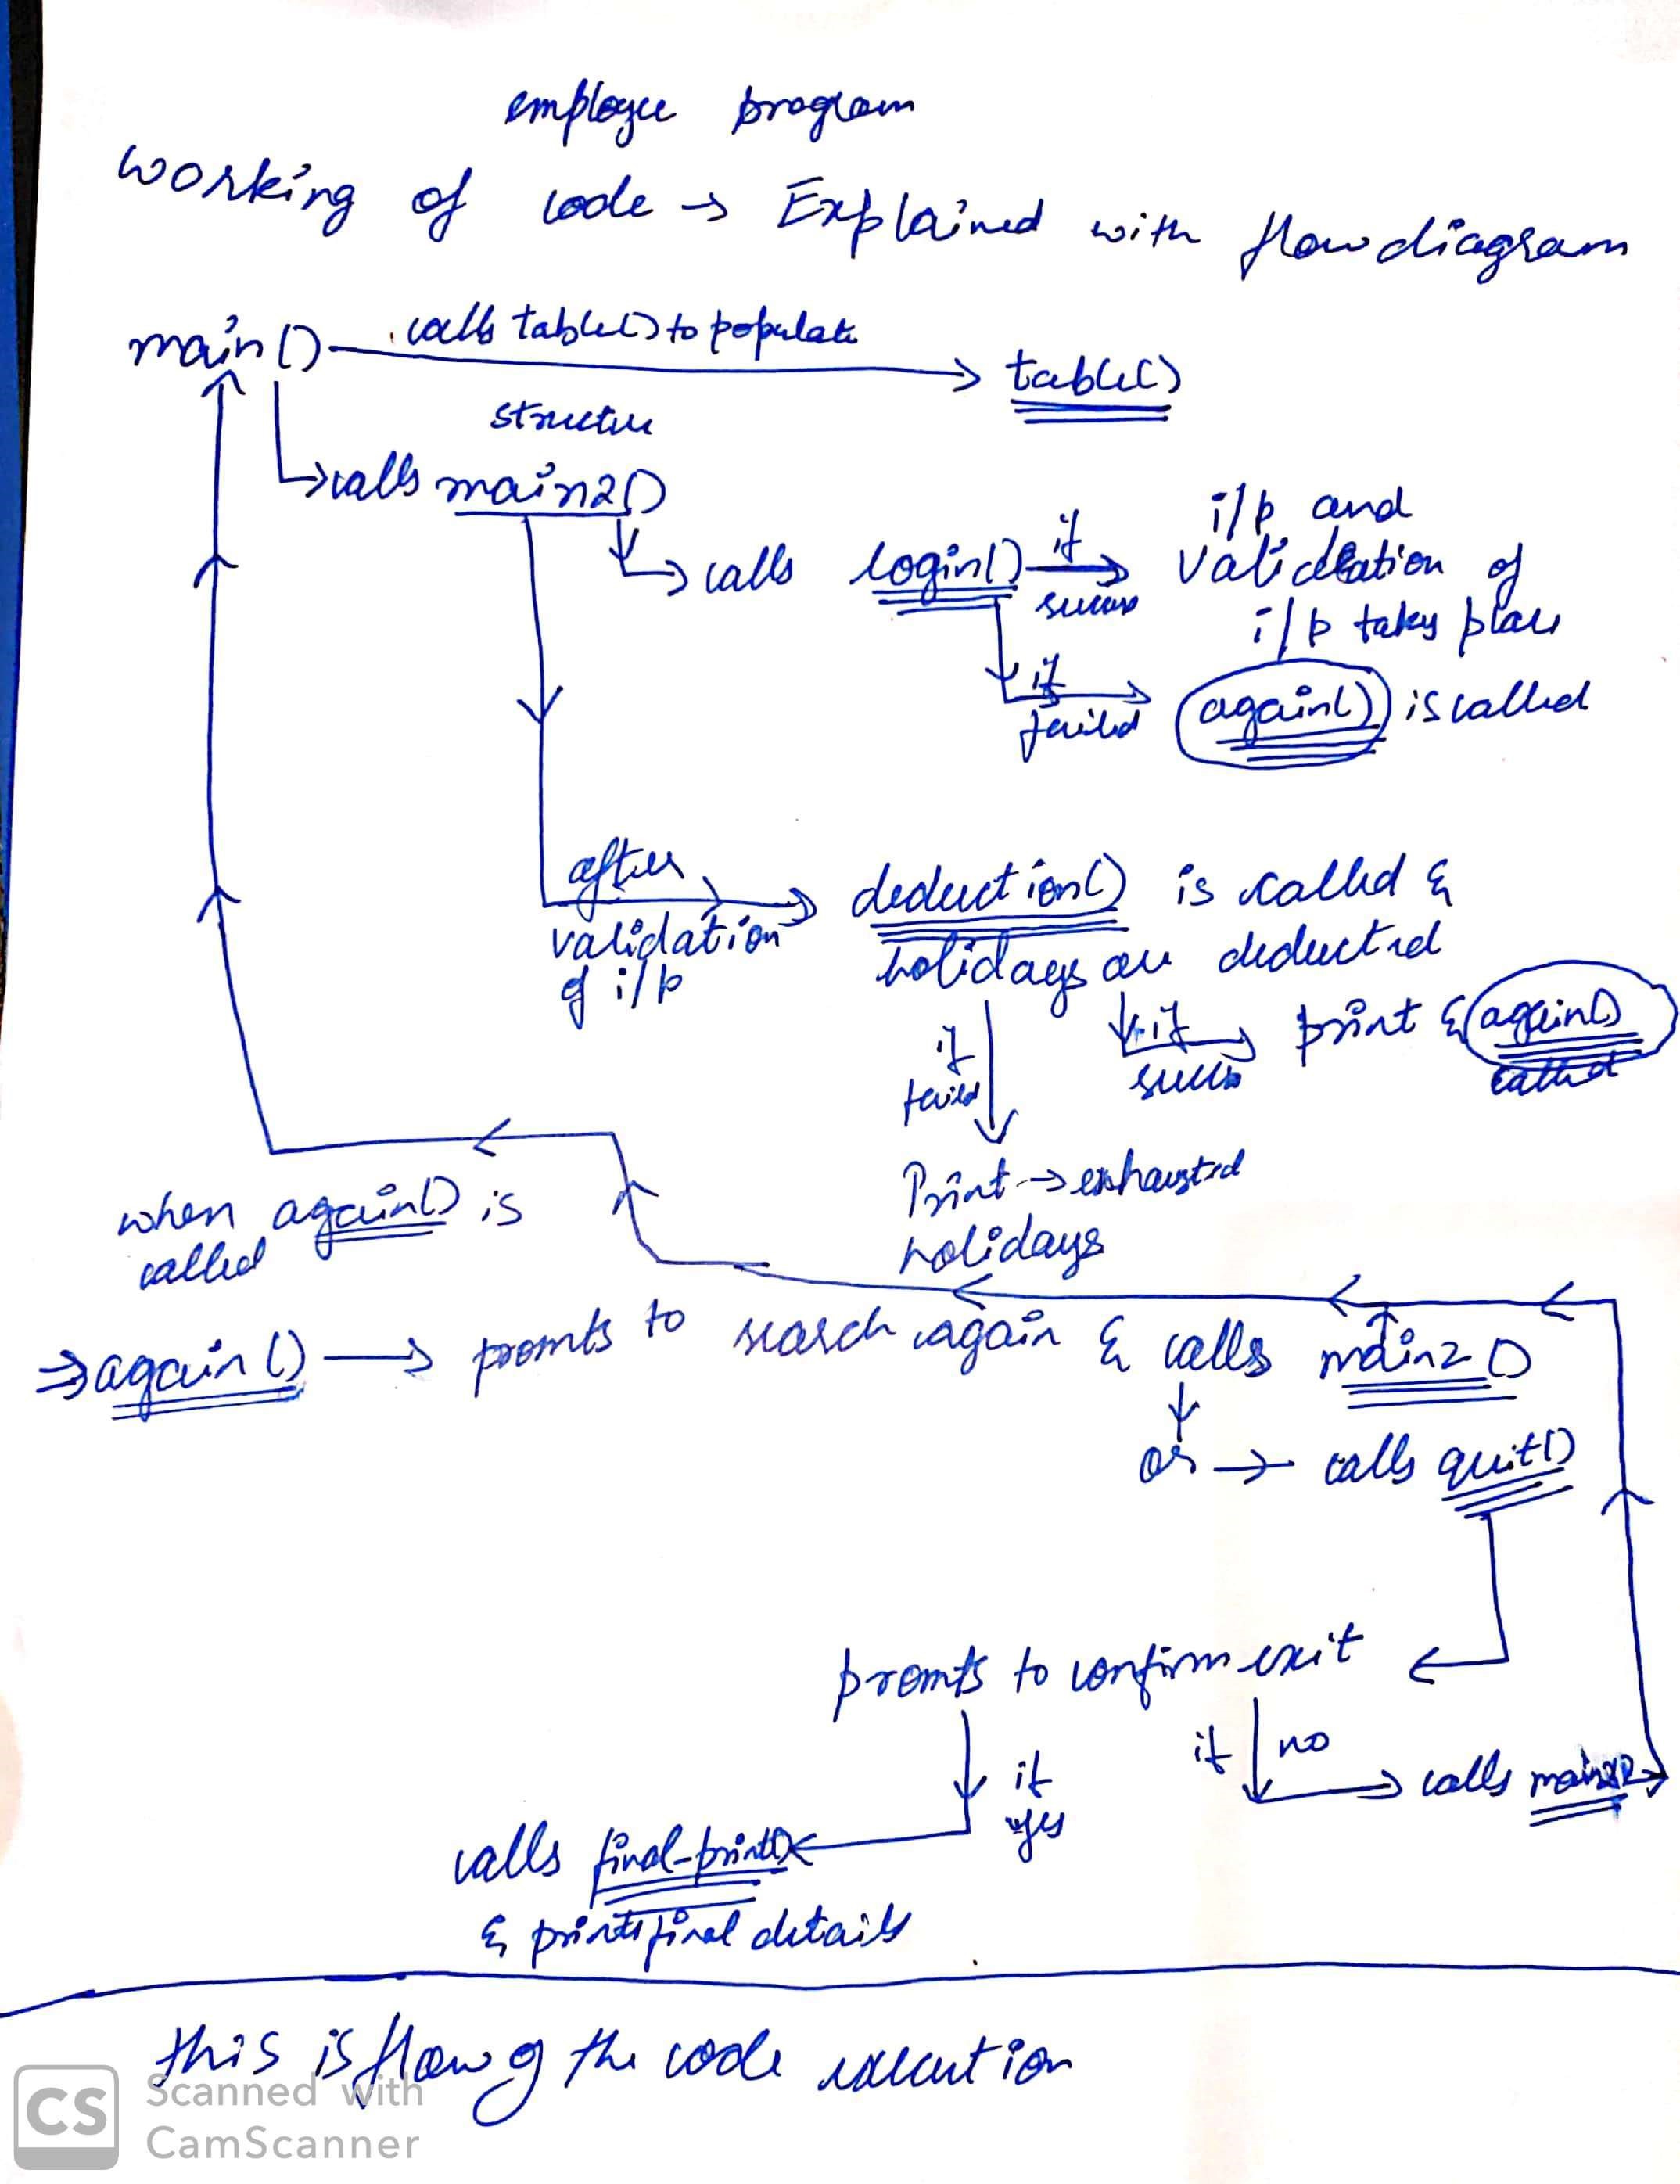 employee program
working of code → Explained with flow diagram
main() calls table() to populate → table()
structure
↳ calls main2()
↳ calls login() if success → i/p and
validation of
i/p takes place
if failed → again() is called
after → deduction() is called &
validation holidays are deducted
of i/p
if success → print & again()
called
if
failed
Print → exhausted
holidays
when again() is
called
⇒ again() → promts to search again & calls main2()
or → calls quit()
promts to confirm exit
if no → calls
if
yes
calls final-print()
& prints final details
this is flow of the code execution
CS Scanned with
CamScanner